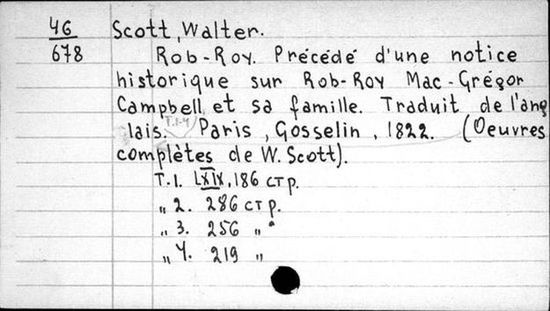 46 Scott, Walter.
678 Rob-Roy. Précédé d'une notice
historique sur Rob-Roy Mac-Grégor
Campbell et sa famille. Traduit de l'ang
T.1-4
lais. Paris, Gosselin, 1822. (Oeuvres
complètes de W. Scott).
T.1. LXIX, 186 стр.
„ 2. 286 стр.
„ 3. 256 „
„ 4. 219 „